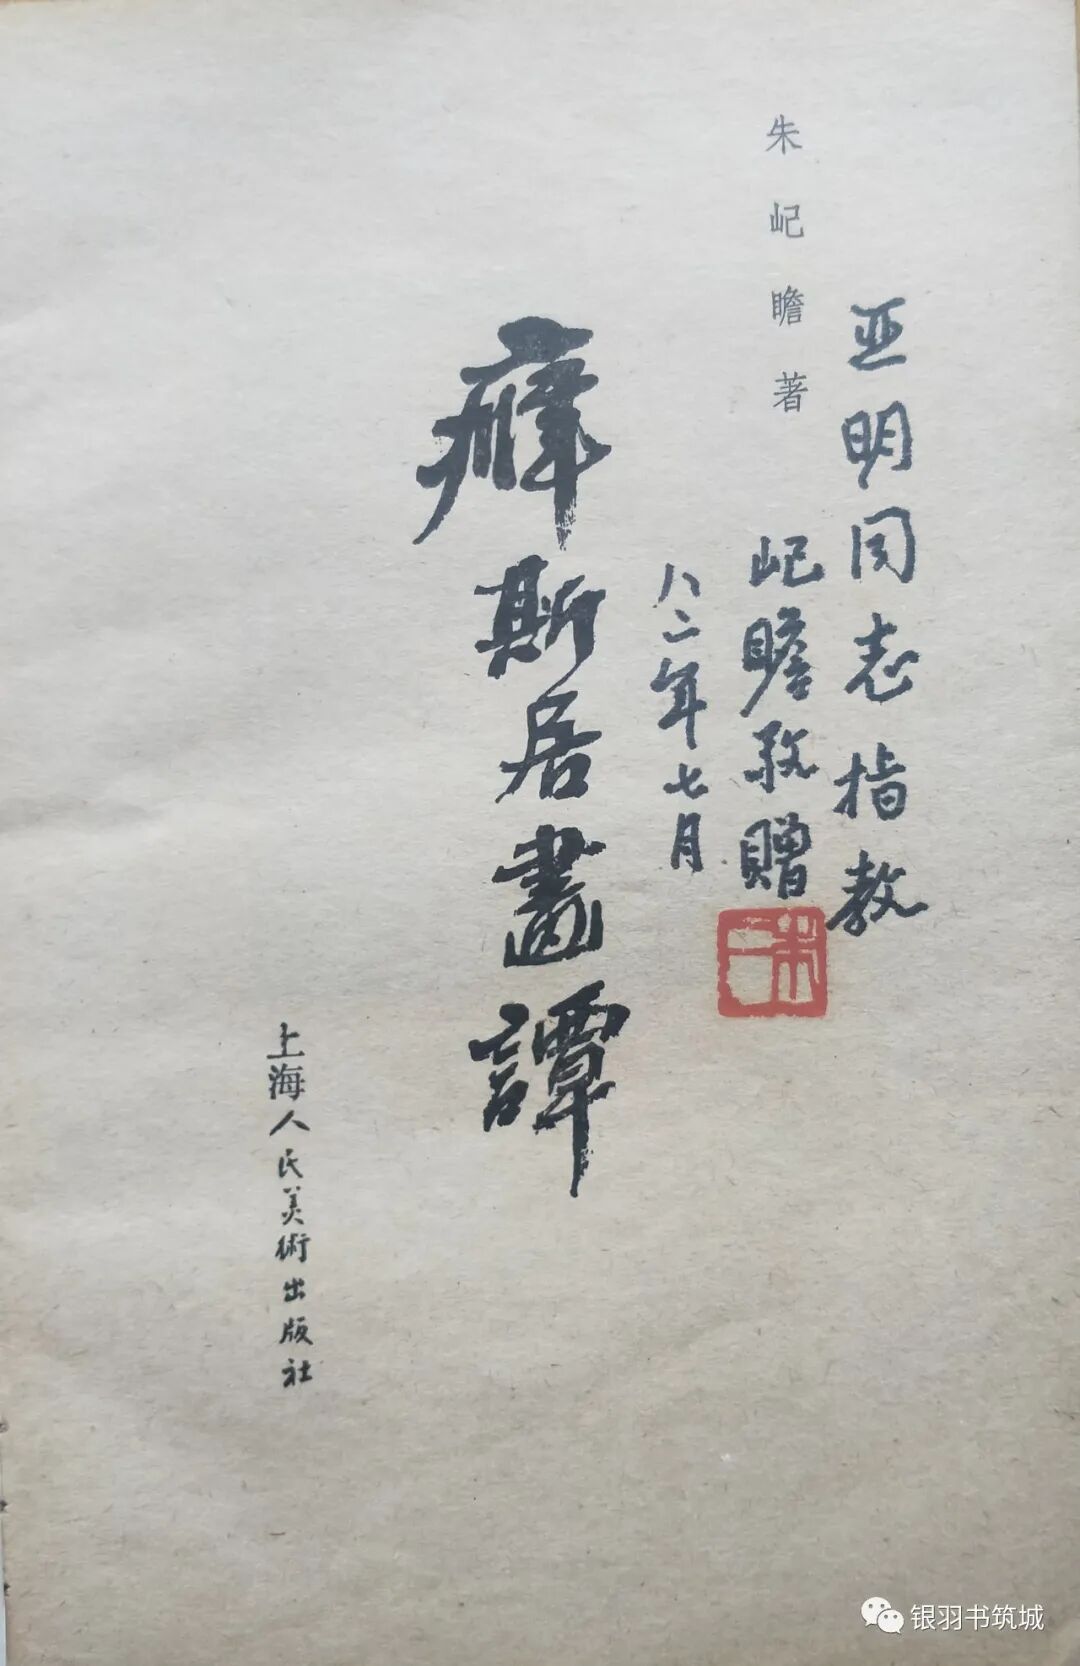 亚明同志指教
朱屺瞻著
屺瞻敬贈
八二年七月
癖斯居畫譚
上海人民美術出版社
银羽书筑城